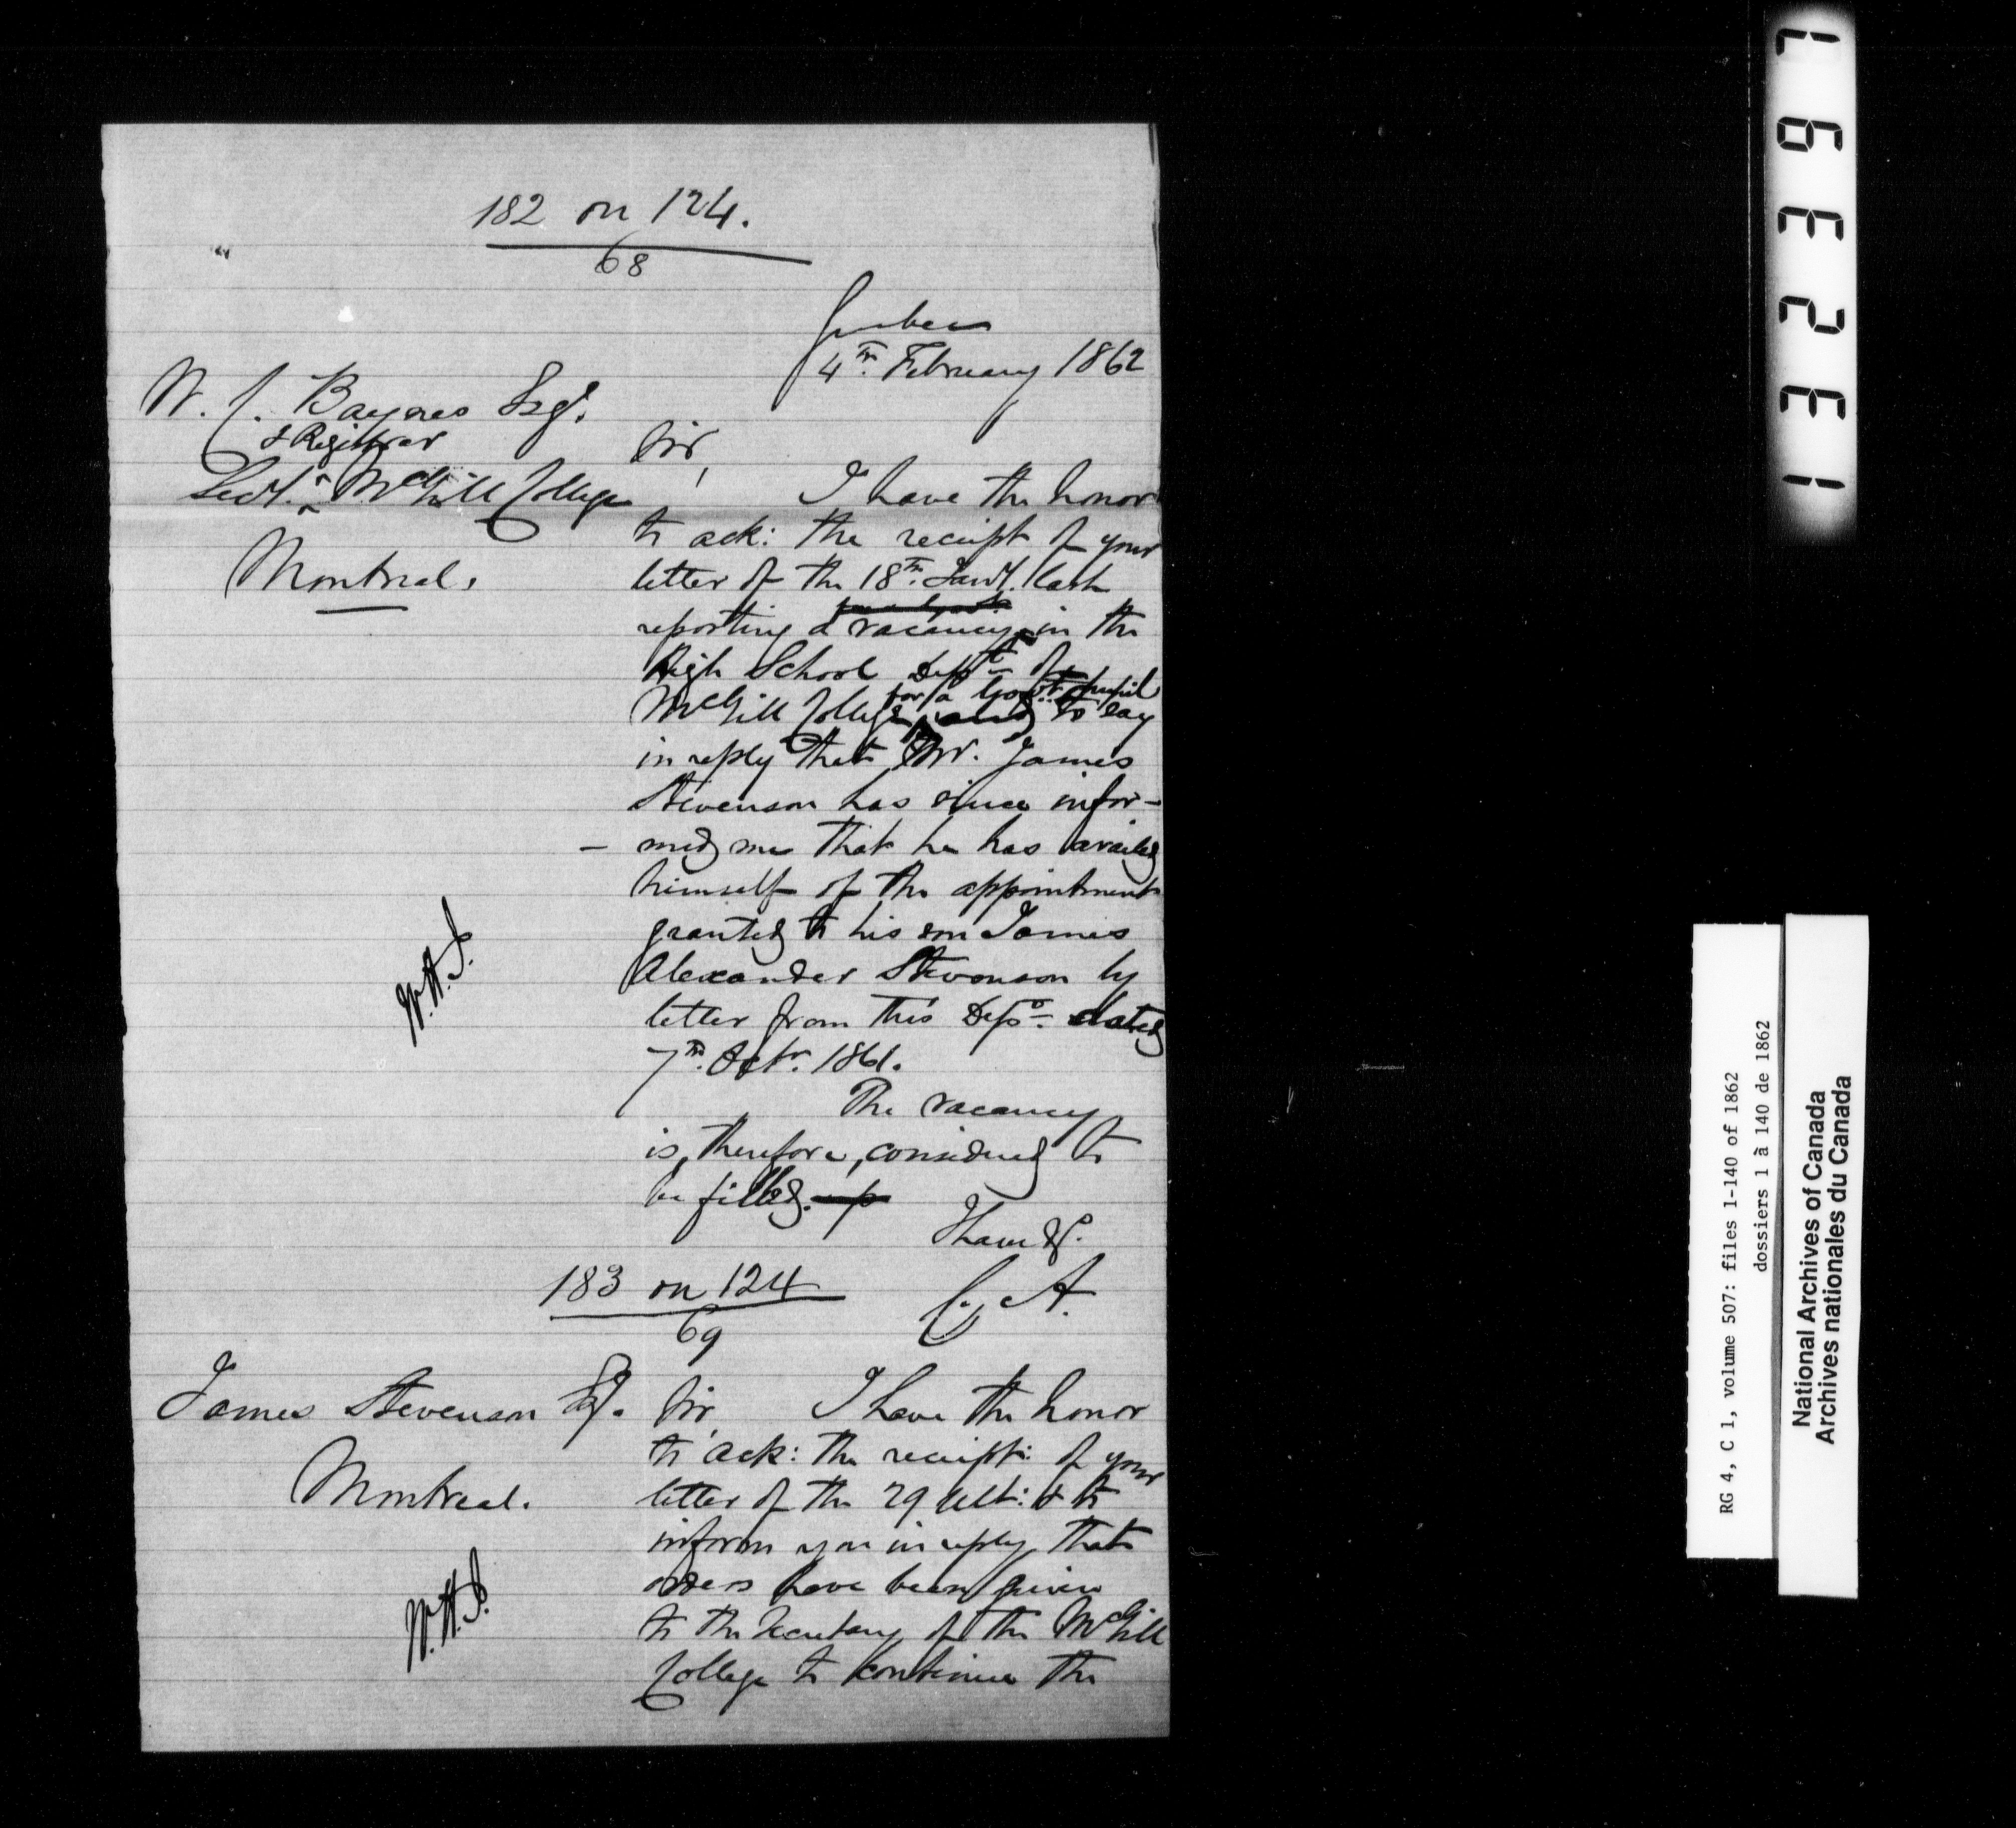 182 on 124.
68
Quebec
4th. February 1862
W. C. Baynes Esqr.
& Registrar
Secy. McGill College
Montreal.
Sir,
I have the honor
to ack: the receipt of your
letter of the 18th. Jany. last
reporting a vacancy in the
High School Dept. of
for a Govt. pupil
McGill College, and to say
in reply that Mr. James
Stevenson has since infor-
- med me that he has availed
himself of the appointment
granted to his son James
Alexander Stevenson by
letter from this Dept. dated
7th. Octr. 1861.
The vacancy
is, therefore, considered to
be filled. up
I have &c.
C. A.
W.H.J.
183 on 124
69
James Stevenson Esq.
Montreal.
Sir, I have the honor
to ack: the receipt: of your
letter of the 29 Ult: & to
inform you in reply that
orders have been given
to the Secretary of the McGill
College to continue the
W.H.J.
132397
RG 4, C 1, volume 507: files 1-140 of 1862
dossiers 1 à 140 de 1862
National Archives of Canada
Archives nationales du Canada